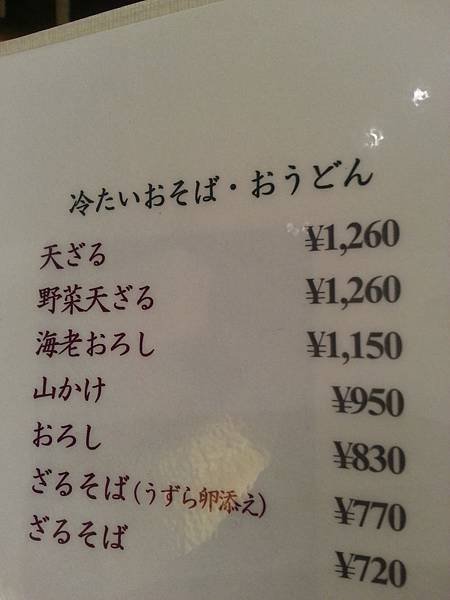 冷たいおそば・おうどん
天ざる ¥1,260
野菜天ざる ¥1,260
海老おろし ¥1,150
山かけ ¥950
おろし ¥830
ざるそば(うずら卵添え) ¥770
ざるそば ¥720